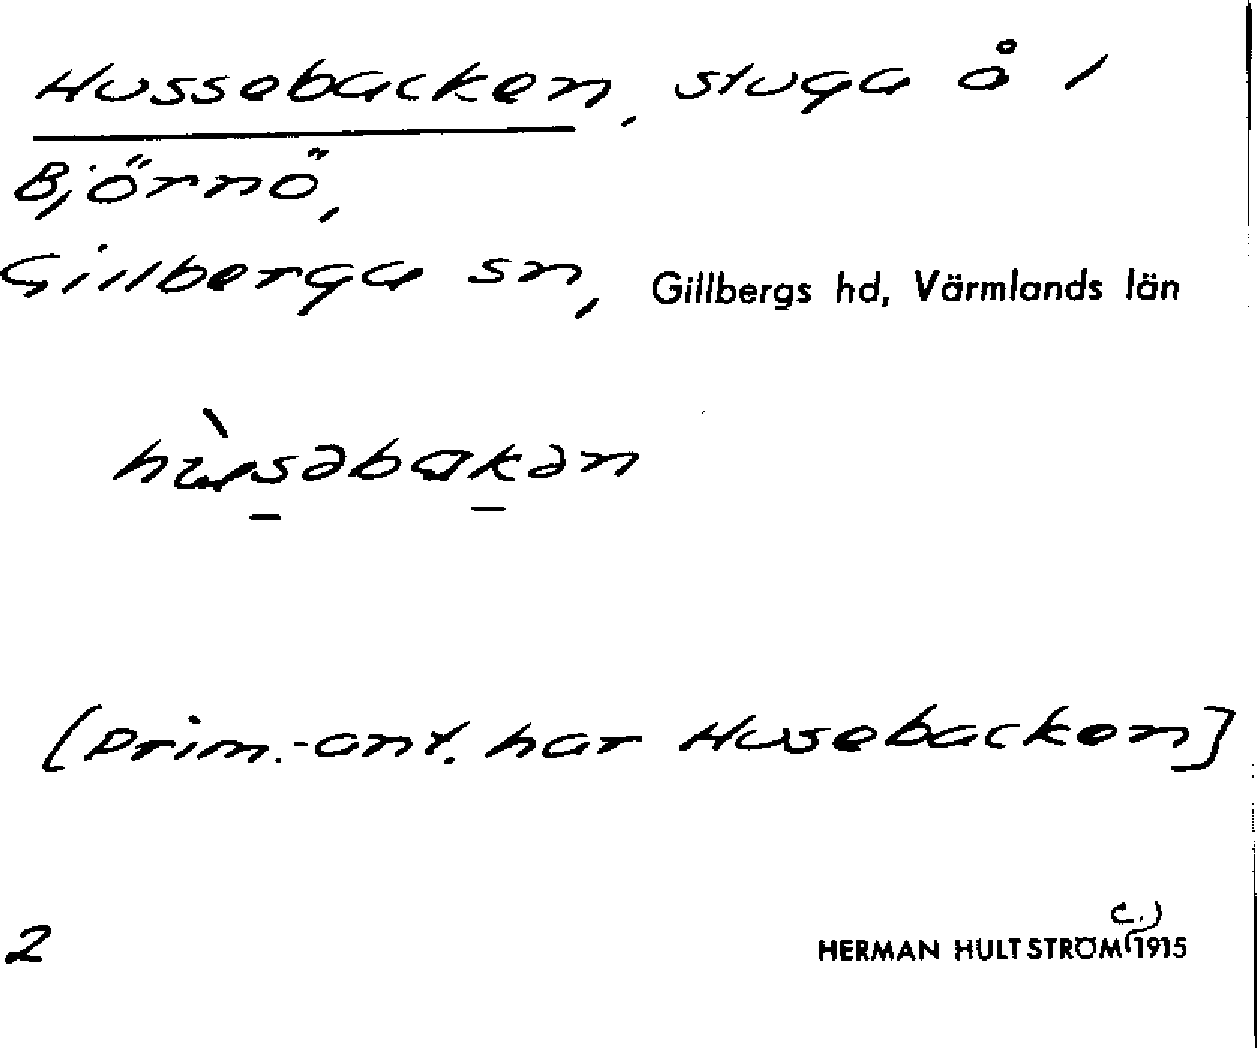 Hussebacken, stuga å 1
Björnö,
Gillberga sn, Gillbergs hd, Värmlands län
[Prim.-ant. har Husebacken]
2
HERMAN HULTSTRÖM (c.) 1915